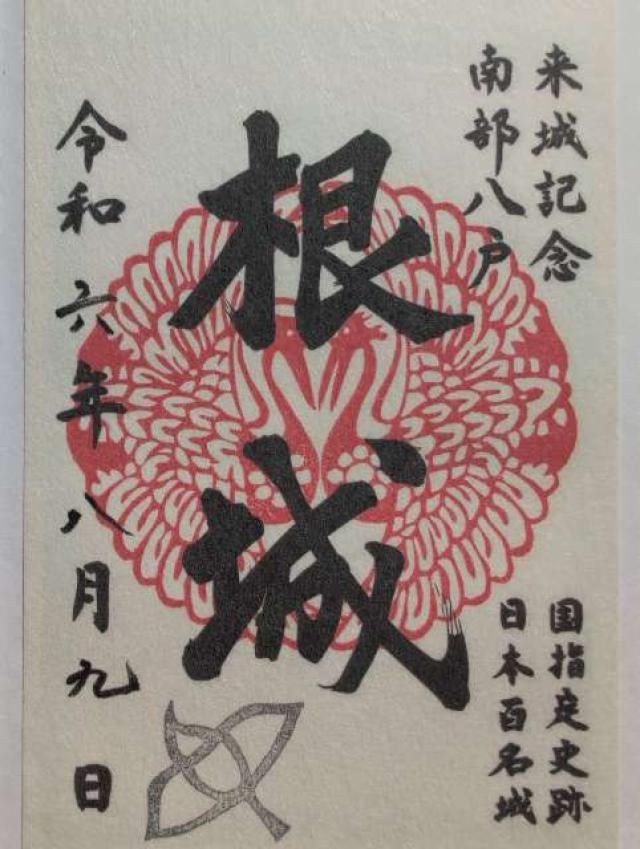 来城記念
南部八戸
根城
国指定史跡
日本百名城
令和六年八月九日